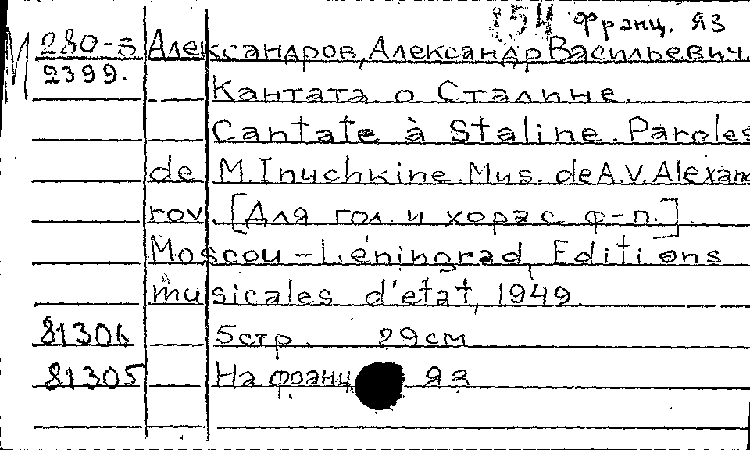 154 Франц. яз
М 280-5 Александров, Александр Васильевич.
2399. Кантата о Сталине.
Cantate à Staline. Paroles
de M. Inuchkine. Mus. de A.V. Alexand
rov. [Для гол. и хора с ф-п.]
Moscou - Léningrad, Editions
musicales d'etat, 1949.
81304 5 стр. 29 см
81305 На франц яз